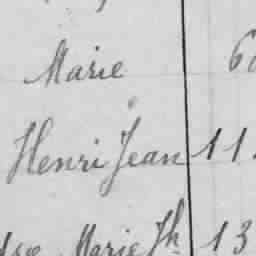 Marie
Henri Jean 11.
Marie Jh 13